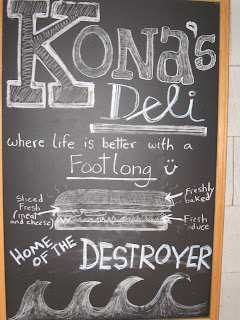 KONA's
Deli
where life is better with a
Footlong
Sliced
Fresh
(meat
and cheese)
Freshly
baked
Fresh
Produce
HOME OF THE DESTROYER